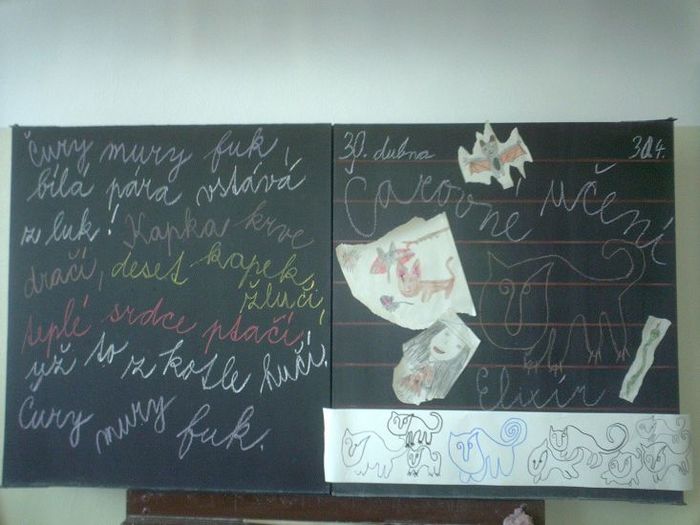 Čury mury fuk,
bílá pára vstává
z luk! Kapka krve
dračí, deset kapek
žluči,
teplé srdce ptačí,
už to z kotle hučí.
Čury mury fuk.
30. dubna 30.4.
Čarovné učení
Elixír